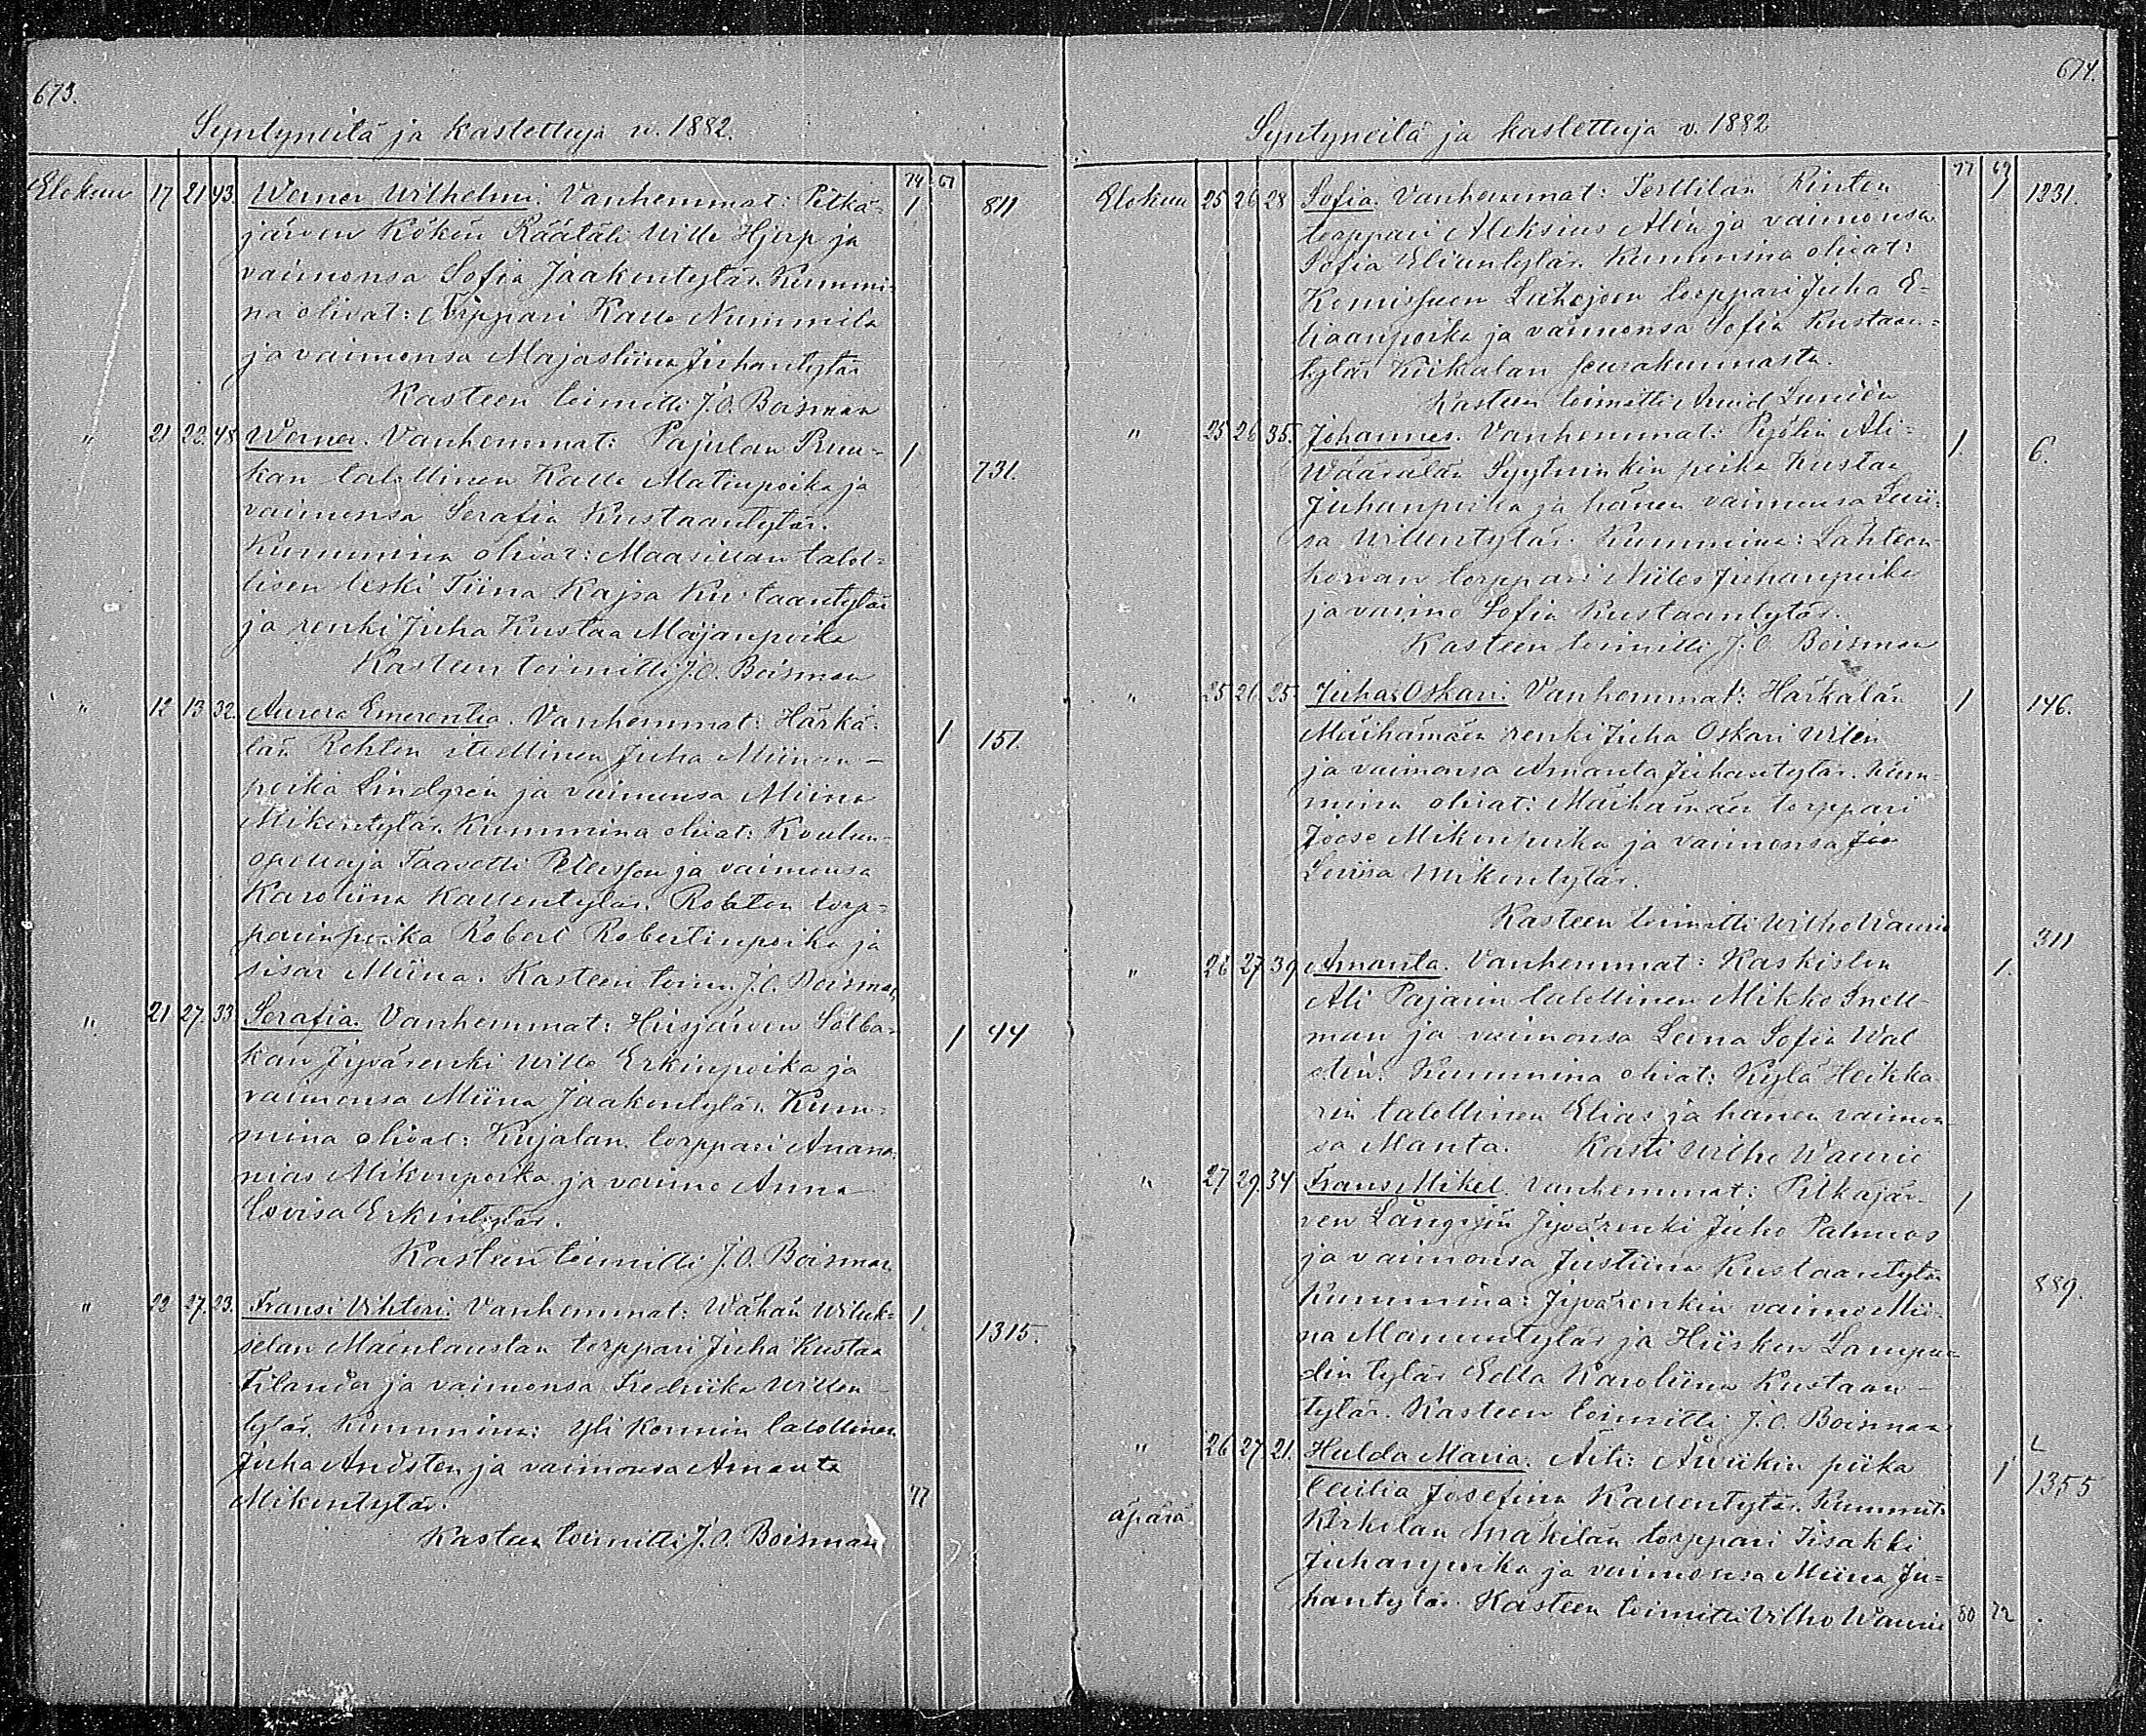 673.
Syntyneitä ja kastettuja v. 1882.
74 67
Elokuu 17 21 43. Werner Wilhelmi. Vanhemmat: Pitkä= 1 811
järven Kökön Räätäli Wille Hjerp ja
vaimonsa Sofia Jaakontytär. Kummi=
na olivat: Torppari Kalle Nummila
ja vaimonsa Majastiina Juhantytär
Kasteen toimitti J.O. Boisman
" 21 22. 48 Werner. Vanhemmat: Pajulan Pruu= 1
kan talollinen Kalle Matinpoika ja 731.
vaimonsa Serafia Kustaantytär.
Kummina olivat: Maasillan talol=
lisen leski Tiina Kajsa Kustaantytär
ja renki Juha Kustaa Majanpoika
Kasteen toimitti J.O. Boisman
" 12 13 32. Aurora Emerentia. Vanhemmat: Härkä= 1
län Rohten itsellinen Juha Miinan- 151.
poika Lindgren ja vaimonsa Miina
Mikontytär. Kummina olivat: Koulun-
opettaja Taavetti Petersson ja vaimonsa
Karoliina Kallentytär. Rohton torp=
parinpoika Robert Robertinpoika ja
sisar Miina. Kasteen toim. J.O. Boisman
" 21 27. 33 Serafia. Vanhemmat: Hirsjärven Solba= 1 44
kan Jyvärenki Wille Erkinpoika ja
vaimonsa Miina Jaakontytär. Kum=
mina olivat: Kujalan torppari Anana=
nias Mikonpoika ja vaimo Anna
Lovisa Erkintytär.
Kasteen toimitti J.O. Boisman
" 22 27. 23. Fransi Vihtori. Vanhemmat: Wähän Wiluk= 1.
selan Mäenlaustan torppari Juha Kustaa 1315.
Filander ja vaimonsa Fredriika Willen-
tytär. Kummina: Yli Konnin talollinen
Juha Andsten ja vaimonsa Amanta
Mikontytär. 77
Kasteen toimitti J.O. Boisman
674.
Syntyneitä ja kastettuja v. 1882
77 67
Elokuu 25 26 28 Sofia. Vanhemmat: Terttilän Rinten 1 1231.
torppari Aleksius Alén ja vaimonsa
Sofia Eliantytär. Kummina olivat:
Komissuon Lähojoen torppari Juha E=
liaanpoika ja vaimonsa Sofia Kustaan=
tytär Kiikalan seurakunnasta.
Kasteen toimitti Arvid Lundén
" 25 26 35. Johannes. Vanhemmat: Pyölin Ali= 1. 6.
Määrälän Syytinkin poika Kustaa
Juhanpoika ja hänen vaimonsa Lovii=
sa Willentytär. Kummina: Lähteen=
korvan torppari Niiles Juhanpoika
ja vaimo Sofia Kustaantytär.
Kasteen toimitti J.O. Boisman
" 25 26 25. Juha Oskari. Vanhemmat: Härkälän 1 146.
Mäihämäen renki Juha Oskari Wilén
ja vaimonsa Amanta Juhantytär. Kum=
mina olivat: Mäihämäen torppari
Joose Mikonpoika ja vaimonsa
Loviisa Mikontytär.
Kasteen toimitti Wilho Waurio
" 26 27 39 Amanta. Vanhemmat: Kaskiston 1. 311
Ali Pajarin talollinen Mikko Snell-
man ja vaimonsa Leena Sofia Wal
dén. Kummina olivat: Kylä Heikka
rin talollinen Elias ja hänen vaimon
sa Manta. Kasti Wilho Waurio
" 27 29. 34 Frans Mikel. Vanhemmat: Pitkäjär- 1
ven Långsjön Jyvärenki Juho Palmros
ja vaimonsa Justiina Kustaantytär 889.
Kummina: Jyvärenkin vaimo Mii-
na Manuntytär ja Hiisken
tytär Edla Karoliina Kustaan-
tytär. Kasteen toimitti J.O. Boisman
" 26 27. 21. Hulda Maria. Äiti: piika 1 1355
äpärä Cecilia Josefina Kallentytär. Kummit:
Kirkolan Mäkilän torppari Iisakki
Juhanpoika ja vaimonsa Miina Ju=
hantytär. Kasteen toimitti Vilho Waurio 80 72